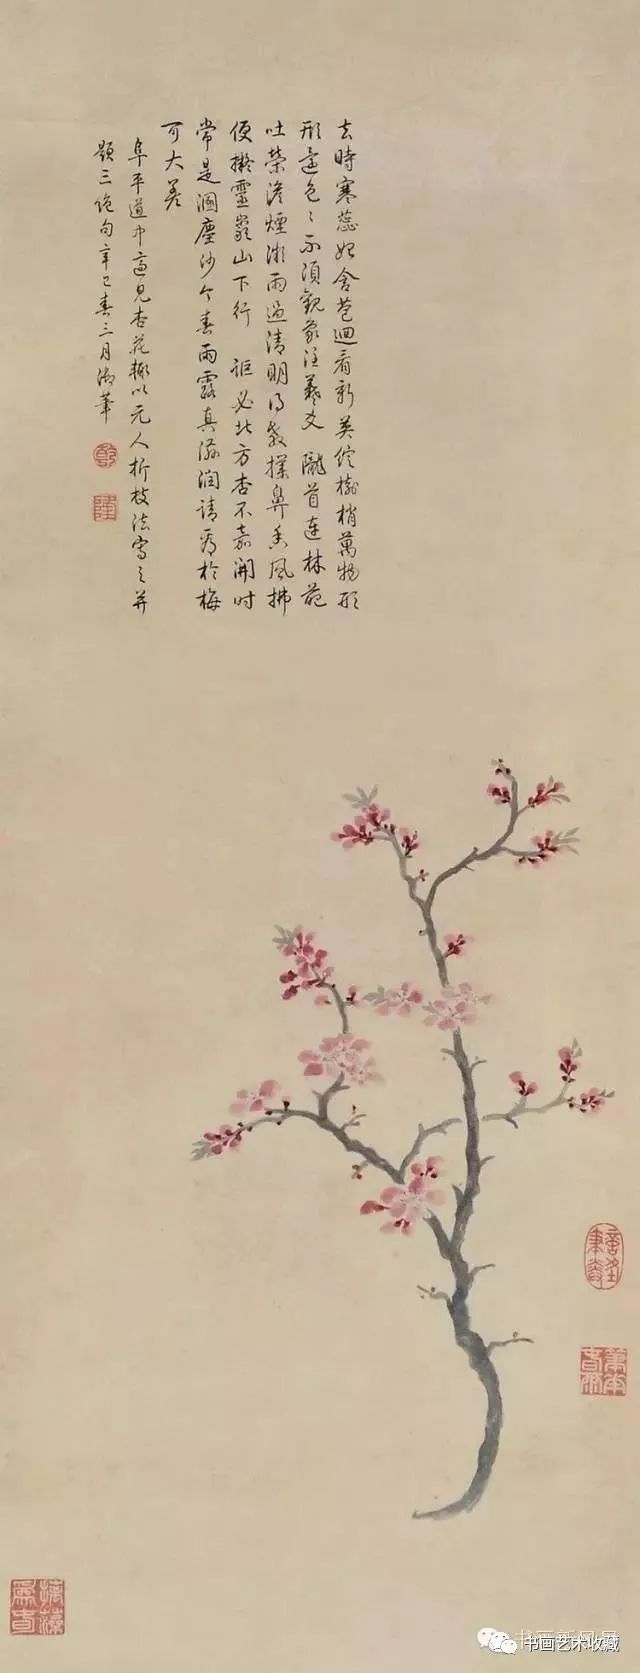 去時寒蕊始含苞迴看新英綻樹梢萬物形
形還色〻不須觀象注羲爻 隴首連林葩
吐榮淡煙微雨過清明日教撲鼻香風拂
便擬靈巖山下行 詎必北方杏不嘉開時
常是涸塵沙今春雨露真滋潤請看於梅
可大差
阜平道中喜見杏花輒以元人折枝法寫之并
題三絕句辛巳春三月御筆
乾
隆
书画艺术收藏